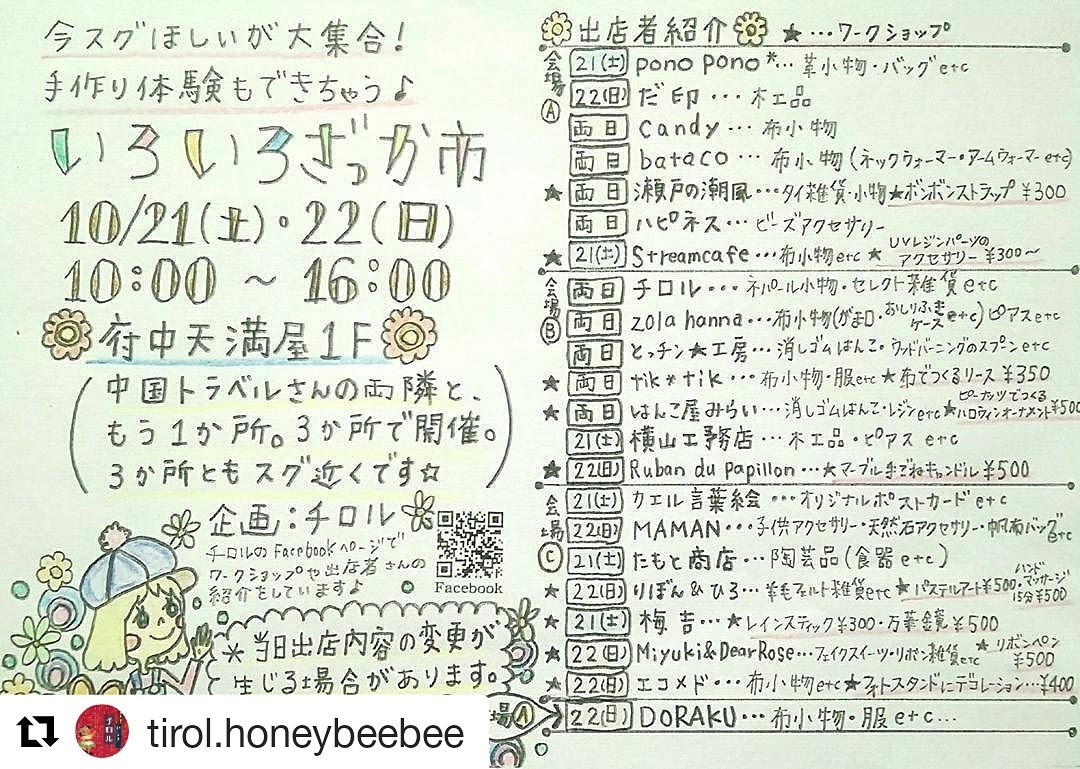 今スグほしいが大集合!
手作り体験もできちゃう♪
いろいろざっか市
10/21(土)・22(日)
10:00 ～ 16:00
府中天満屋1F
(中国トラベルさんの両隣と、
もう1か所。3か所で開催。
3か所ともスグ近くです☆)
企画:チロル
チロルのFacebookページで
ワークショップや出店者さんの
紹介をしています♪
Facebook
*当日出店内容の変更が
生じる場合があります。
tirol.honeybeebee
出店者紹介 ★…ワークショップ
会場Ⓐ
21(土) pono pono*…革小物・バッグetc
22(日) だ印…木工品
両日 candy…布小物
両日 bataco…布小物(ネックウォーマー・アームウォーマーetc)
★ 両日 瀬戸の潮風…タイ雑貨・小物★ボンボンストラップ ¥300
両日 ハピネス…ビーズアクセサリー
★ 21(土) Streamcafe…布小物etc ★UVレジンパーツのアクセサリー ¥300～
会場Ⓑ
両日 チロル…ネパール小物・セレクト雑貨etc
両日 zola hanna…布小物(がま口・おしりふきケースetc)ピアスetc
両日 とっチン★工房…消しゴムはんこ・ウッドバーニングのスプーンetc
★ 両日 tik*tik…布小物・服etc★布でつくるリース ¥350
★ 両日 はんこ屋みらい…消しゴムはんこ・レジンetc★ピーナッツでつくるハロウィンオーナメント¥500
21(土)横山工務店…木工品・ピアスetc
★ 22(日) Ruban du papillon…★マーブル手でねキャンドル ¥500
会場Ⓒ
21(土) カエル言葉絵…オリジナルポストカードetc
22(日) MAMAN…子供アクセサリー・天然石アクセサリー・帆布バッグetc
21(土) たもと商店…陶芸品(食器etc)
★ 22(日) りぼん&ひろ…羊毛フェルト雑貨etc ★パステルアート¥500 ハンドマッサージ15分¥500
★ 21(土) 梅吉…★レインスティック¥300・万華鏡¥500
★ 22(日) Miyuki&DearRose…フェイクスイーツ・リボン雑貨etc ★リボンペン¥500
★ 22(日) エコメド…布小物etc★フォトスタンドにデコレーション…¥400
場Ⓐ 22(日) DORAKU…布小物・服etc…